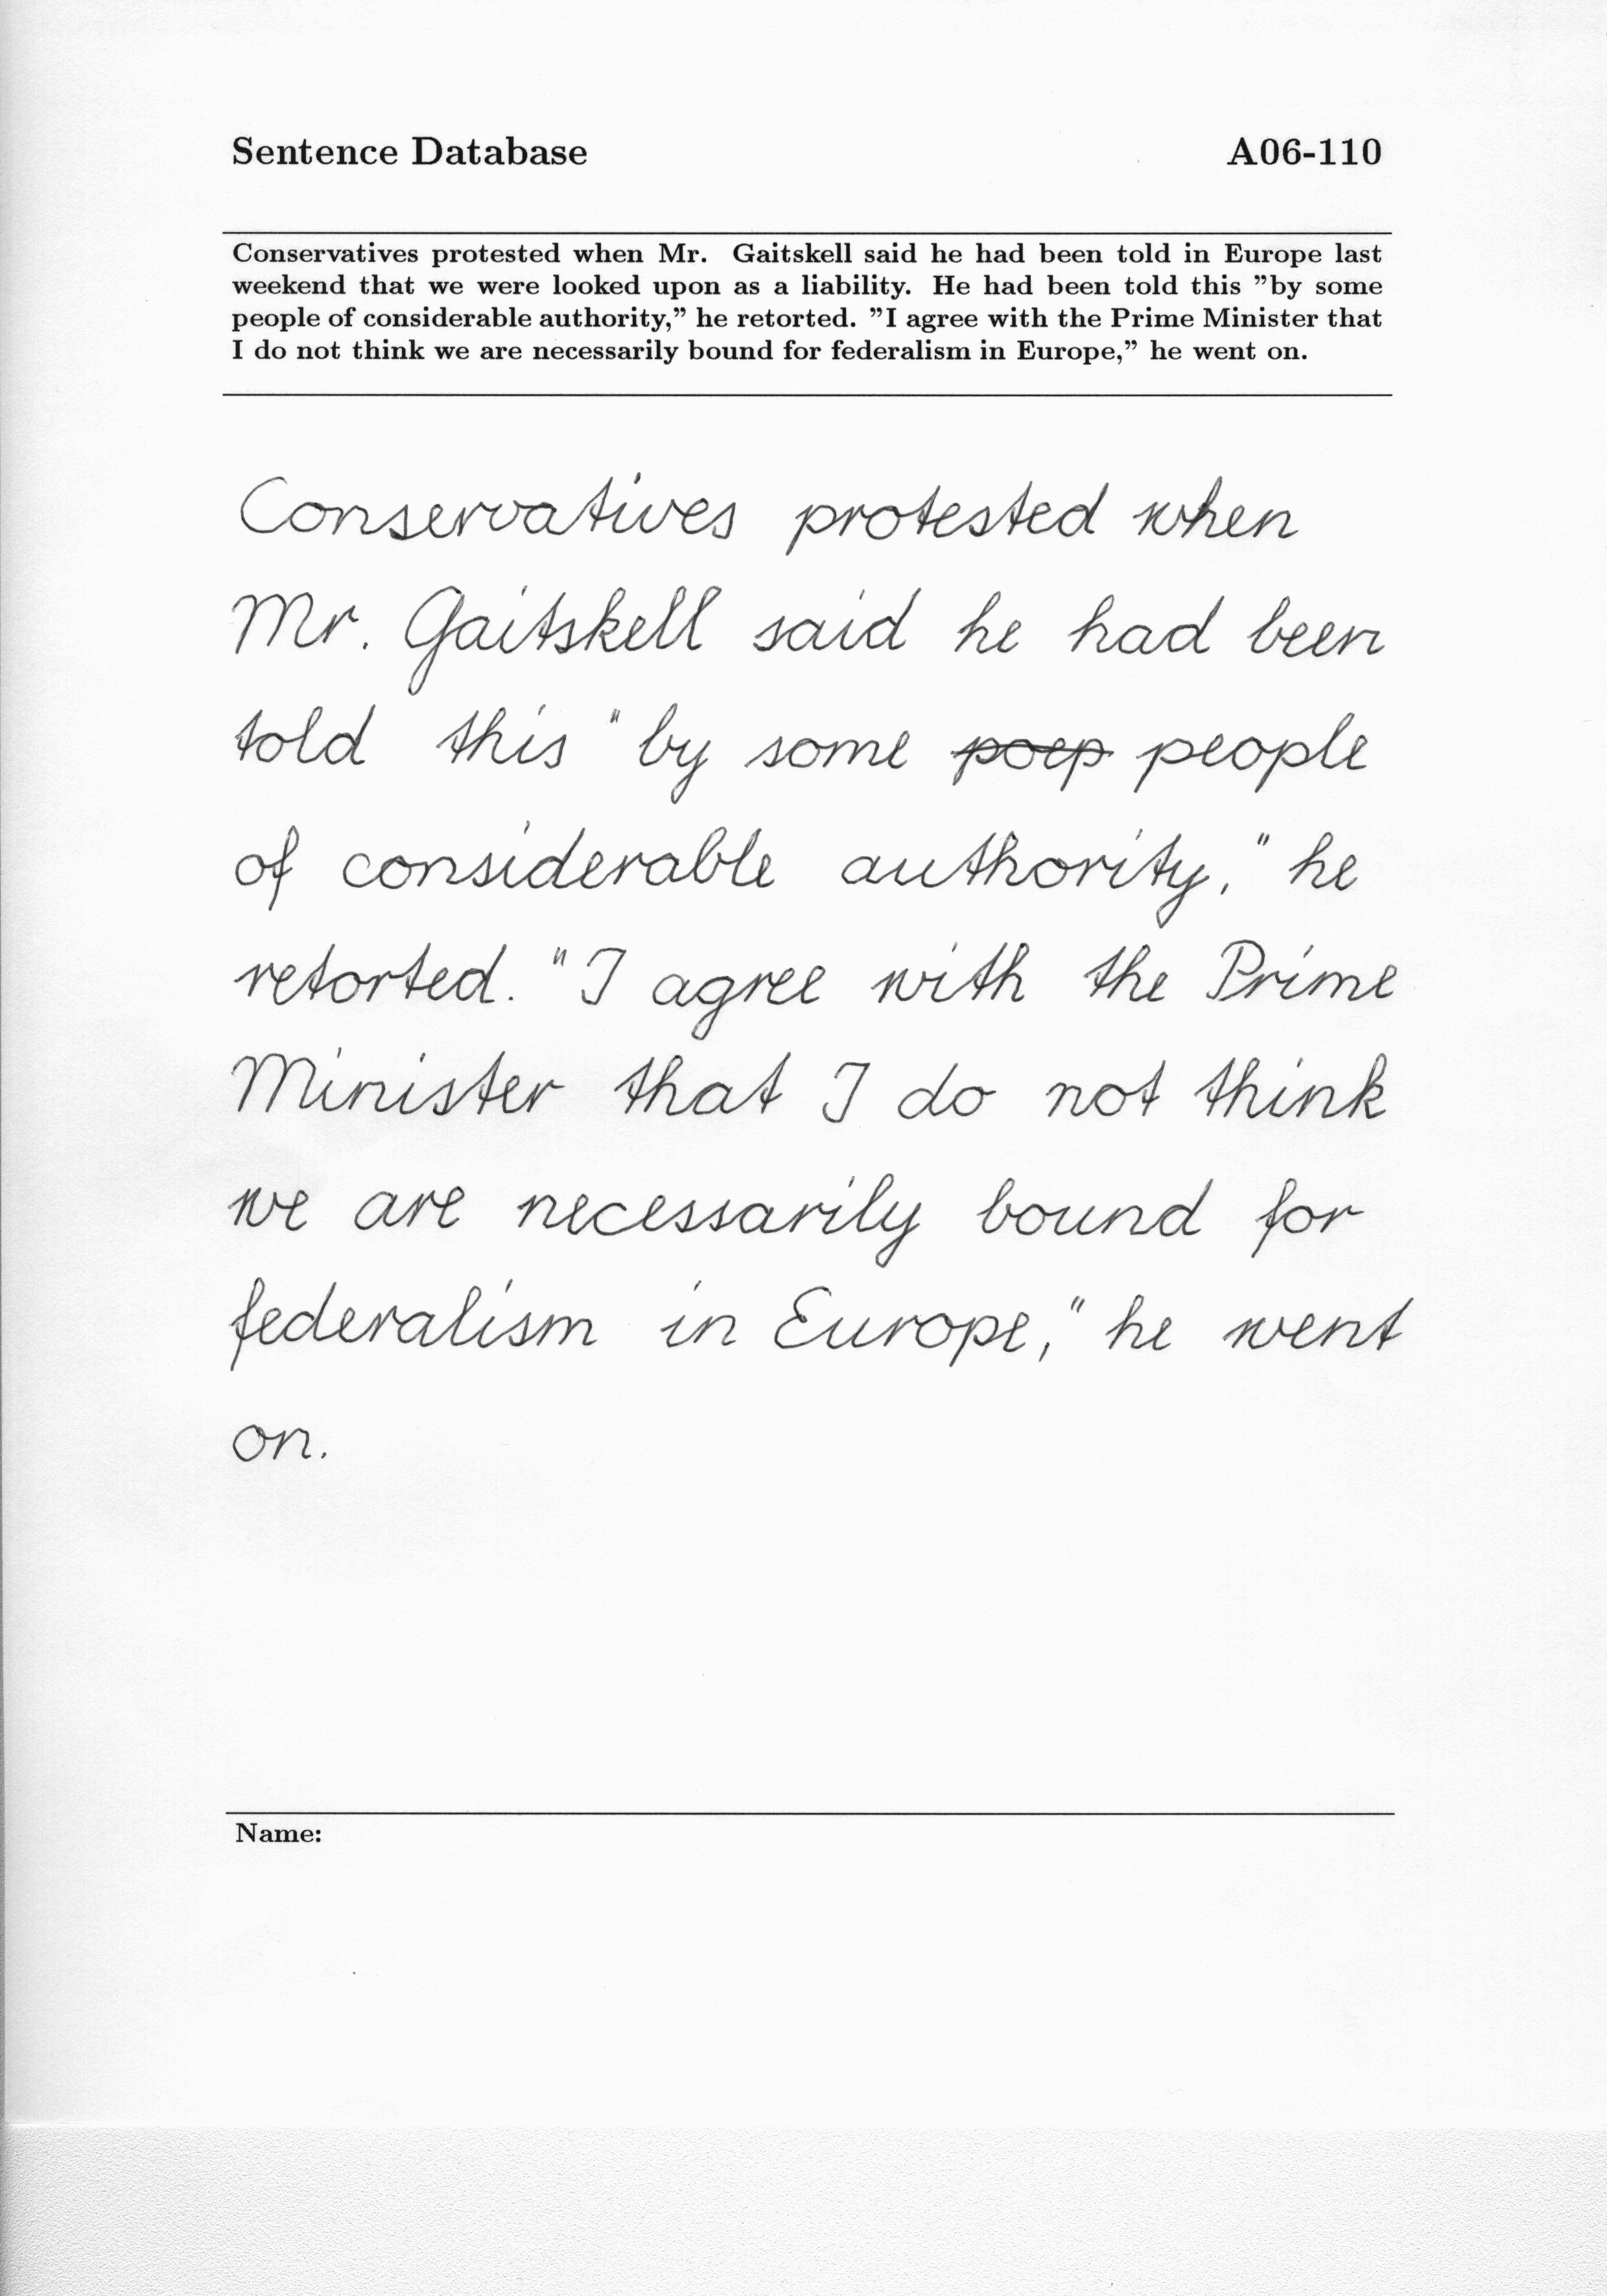 Sentence Database A06-110
Conservatives protested when Mr. Gaitskell said he had been told in Europe last
weekend that we were looked upon as a liability. He had been told this "by some
people of considerable authority," he retorted. "I agree with the Prime Minister that
I do not think we are necessarily bound for federalism in Europe," he went on.
Conservatives protested when
Mr. Gaitskell said he had been
told this "by some poep people
of considerable authority," he
retorted. "I agree with the Prime
Minister that I do not think
we are necessarily bound for
federalism in Europe," he went
on.
Name: